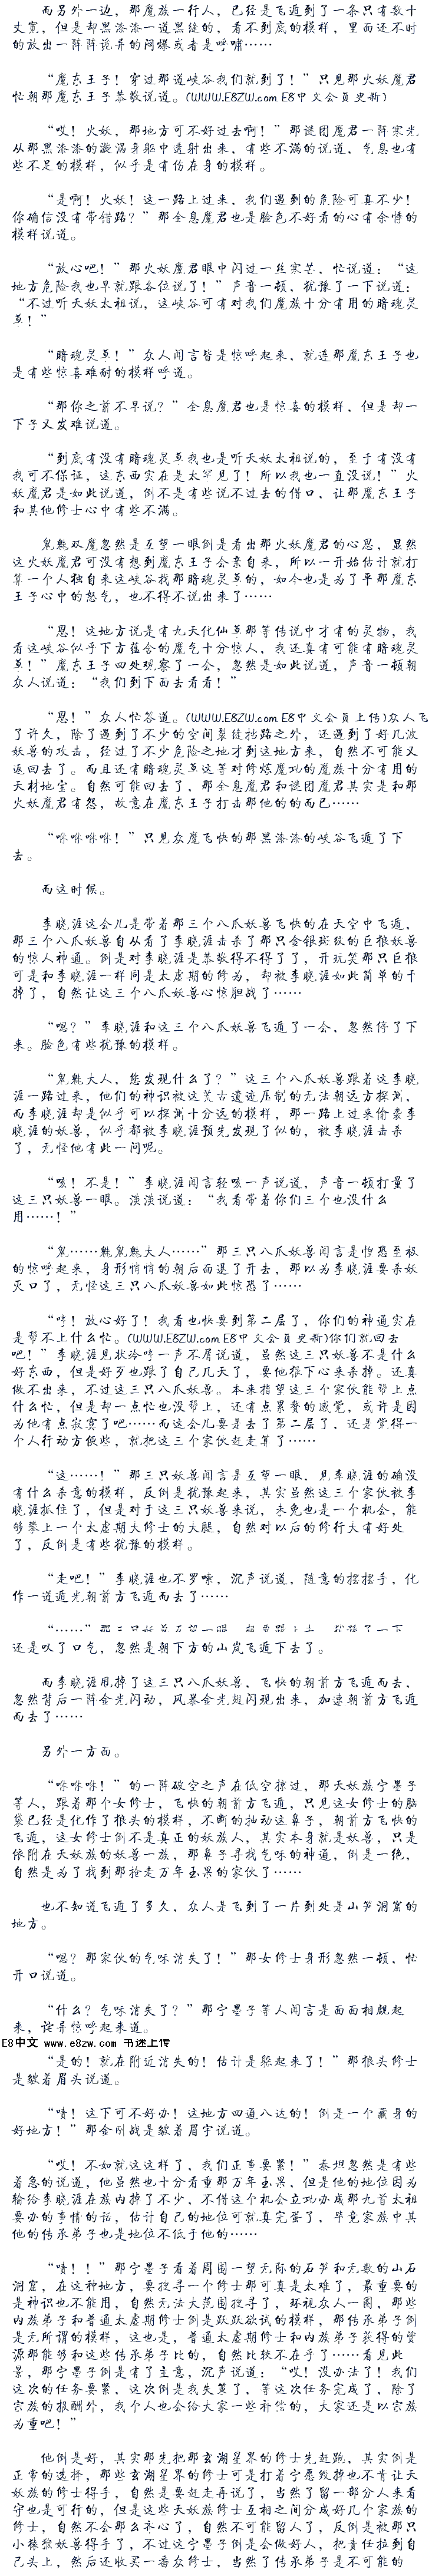 而另外一边，那魔族一行人，已经是飞遁到了一条只有数十
丈宽，但是却黑漆漆一道黑缝的，看不到底的模样，里面还不时
的放出一阵阵诡异的闷爆或者是呼啸……
“魔东王子！穿过那道峡谷我们就到了！”只见那火妖魔君
忙朝那魔东王子恭敬说道。(WWW.E8ZW.com E8中文会员史新)
“哎！火妖，那地方可不好过去啊！”那谜团魔君一阵寒光
从那黑漆漆的漩涡身躯中透射出来，有些不满的说道，气息也有
些不足的模样，似乎是有伤在身的模样。
“是啊！火妖！这一路上过来，我们遇到的危险可真不少！
你确信没有带错路？”那全息魔君也是脸色不好看的心有余悸的
模样说道。
“放心吧！”那火妖魔君眼中闪过一丝寒芒，忙说道：“这
地方危险我也早就跟各位说了！”声音一顿，犹豫了一下说道：
“不过听天妖太祖说，这峡谷可有对我们魔族十分有用的暗魂灵
草！”
“暗魂灵草！”众人闻言皆是惊呼起来，就连那魔东王子也
是有些惊喜难耐的模样呼道。
“那你之前不早说？”全息魔君也是惊喜的模样，但是却一
下子又发难说道。
“到底有没有暗魂灵草我也是听天妖太祖说的，至于有没有
我可不保证，这东西实在是太罕见了！所以我也一直没说！”火
妖魔君是如此说道，倒不是有些说不过去的借口，让那魔东王子
和其他修士心中有些不满。
鬼魈双魔忽然是互望一眼倒是看出那火妖魔君的心思，显然
这火妖魔君可没有想到魔东王子会亲自来，所以一开始估计就打
算一个人独自来这峡谷找那暗魂灵草的，如今也是为了平那魔东
王子心中的怒气，也不得不说出来了……
“恩！这地方说是有九天化仙草那等传说中才有的灵物，我
看这峡谷似乎下方蕴含的魔气十分惊人，我还真有可能有暗魂灵
草！”魔东王子四处观察了一会，忽然是如此说道，声音一顿朝
众人说道：“我们到下面去看看！”
“恩！”众人忙答道。(WWW.E8ZW.com E8中文会员上传)众人飞
了许久，除了遇到了不少的空间裂缝拦路之外，还遇到了好几波
妖兽的攻击，经过了不少危险之地才到这地方来，自然不可能又
返回去了。而且还有暗魂灵草这等对修炼魔功的魔族十分有用的
天材地宝。自然可能回去了，那全息魔君和谜团魔君其实是和那
火妖魔君有怨，故意在魔东王子打击那他的的而已……
“咻咻咻咻！”只见众魔飞快的那黑漆漆的峡谷飞遁了下
去。
而这时候。
李晓涯这会儿是带着那三个八爪妖兽飞快的在天空中飞遁，
那三个八爪妖兽自从看了李晓涯击杀了那只金银斑纹的巨狼妖兽
的惊人神通。倒是对李晓涯是恭敬得不得了了，开玩笑那只巨狼
可是和李晓涯一样同是太虚期的修为，却被李晓涯如此简单的干
掉了，自然让这三个八爪妖兽心惊胆战了……
“嗯？”李晓涯和这三个八爪妖兽飞遁了一会，忽然停了下
来。脸色有些犹豫的模样。
“鬼魈大人，您发现什么了？”这三个八爪妖兽跟着这李晓
涯一路过来，他们的神识被这荒古遗迹压制的无法朝远方探测，
而李晓涯却是似乎可以探测十分远的模样，那一路上过来偷袭李
晓涯的妖兽，似乎都被李晓涯预先发现了似的，被李晓涯击杀
了，无怪他有此一问呢。
“咳！不是！”李晓涯闻言轻咳一声说道，声音一顿打量了
这三只妖兽一眼。淡淡说道：“我看带着你们三个也没什么
用……！”
“鬼……魈鬼魈大人……”那三只八爪妖兽闻言是惶恐至极
的惊呼起来，身形悄悄的朝后面退了开去，那以为李晓涯要杀妖
灭口了，无怪这三只八爪妖兽如此惊恐了……
“哼！放心好了！我看也快要到第二层了，你们的神通实在
是帮不上什么忙。(WWW.E8ZW.com E8中文会员史新)你们就回去
吧！”李晓涯见状冷哼一声不屑说道，虽然这三只妖兽不是什么
好东西，但是好歹也跟了自己几天了，要他狠下心来杀掉。还真
做不出来，不过这三只八爪妖兽。本来指望这三个家伙能帮上点
什么忙，但是却一点忙也没帮上，还有点累赘的感觉，或许是因
为他有点寂寞了吧……而这会儿要是去了第二层了，还是觉得一
个人行动方便些，就把这三个家伙赶走算了……
“这……！”那三只妖兽闻言是互望一眼，见李晓涯的确没
有什么杀意的模样，反倒是犹豫起来，其实虽然这三个家伙被李
晓涯抓住了，但是对于这三只妖兽来说，未免也是一个机会，能
够攀上一个太虚期大修士的大腿，自然对以后的修行大有好处
了，反倒是有些犹豫的模样。
“走吧！”李晓涯也不罗嗦，沉声说道，随意的摆摆手，化
作一道遁光朝前方飞遁而去了……
还是叹了口气，忽然是朝下方的山岚飞遁下去了。
而李晓涯甩掉了这三只八爪妖兽，飞快的朝前方飞遁而去，
忽然背后一阵金光闪动，风暴金光翅闪现出来，加速朝前方飞遁
而去了……
另外一方面。
“咻咻咻！”的一阵破空之声在低空掠过，那天妖族宁墨子
等人，跟着那个女修士，飞快的朝前方飞遁，只见这女修士的脑
袋已经是化作了狼头的模样，不断的抽动这鼻子，朝前方飞快的
飞遁，这女修士倒不是真正的妖族人，其实本身就是妖兽，只是
依附在天妖族的妖兽一族，那鼻子寻找气味的神通，倒是一绝，
自然是为了找到那抢走万年玉果的家伙了……
也不知道飞遁了多久，众人是飞到了一片到处是山笋洞窟的
地方。
“嗯？那家伙的气味消失了！”那女修士身形忽然一顿，忙
开口说道。
“什么？气味消失了？”那宁墨子等人闻言是面面相觑起
来，诧异惊呼起来道。
E8中文 www.e8zw.com 书迷上传
“是的！就在附近消失的！估计是躲起来了！”那狼头修士
是皱着眉头说道。
“啧！这下可不好办！这地方四通八达的！倒是一个藏身的
好地方！”那金刚战是皱着眉宇说道。
“哎！不如就这这样了，我们正事要紧！”泰坦忽然是有些
着急的说道，他虽然也十分看重那万年玉果，但是他的地位因为
输给李晓涯在族内掉了不少，不借这个机会立功办成那九首太祖
要办的事情的话，估计自己的地位可就真完蛋了，毕竟家族中其
他的传承弟子也是地位不低于他的……
“啧！！”那宁墨子看着周围一望无际的石笋和无数的山石
洞窟，在这种地方，要搜寻一个修士那可真是太难了，最重要的
是神识也不能用，自然无法大范围搜寻了，环视众人一圈，那些
内族弟子和普通太虚期修士倒是跃跃欲试的模样，那传承弟子倒
是无所谓的模样，这也是，普通太虚期修士和内族弟子获得的资
源那能够和这些传承弟子比的，自然比较不在乎了……看见此
景，那宁墨子倒是有了主意，沉声说道：“哎！没办法了！我们
这次的任务要紧，这次倒是我失策了，等这次任务完成了，除了
宗族的报酬外，我个人也会给大家一些补偿的，大家还是以宗族
为重吧！”
他倒是好，其实那先把那玄湖星界的修士先赶跑，其实倒是
正常的选择，那些玄湖星界的修士可是打着宁愿毁掉也不肯让天
妖族的修士得手，自然是要赶走再说了，当然了留一部分人来看
守也是可行的，但是这些天妖族修士互相之间分成好几个家族的
修士，自然不会那么齐心了，自然不可能留人了，反倒是被那只
小猿猴妖兽得手了，不过这宁墨子倒是会做好人，把责任拉到自
己头上，然后还收买一番众修士，当然了传承弟子是不可能的